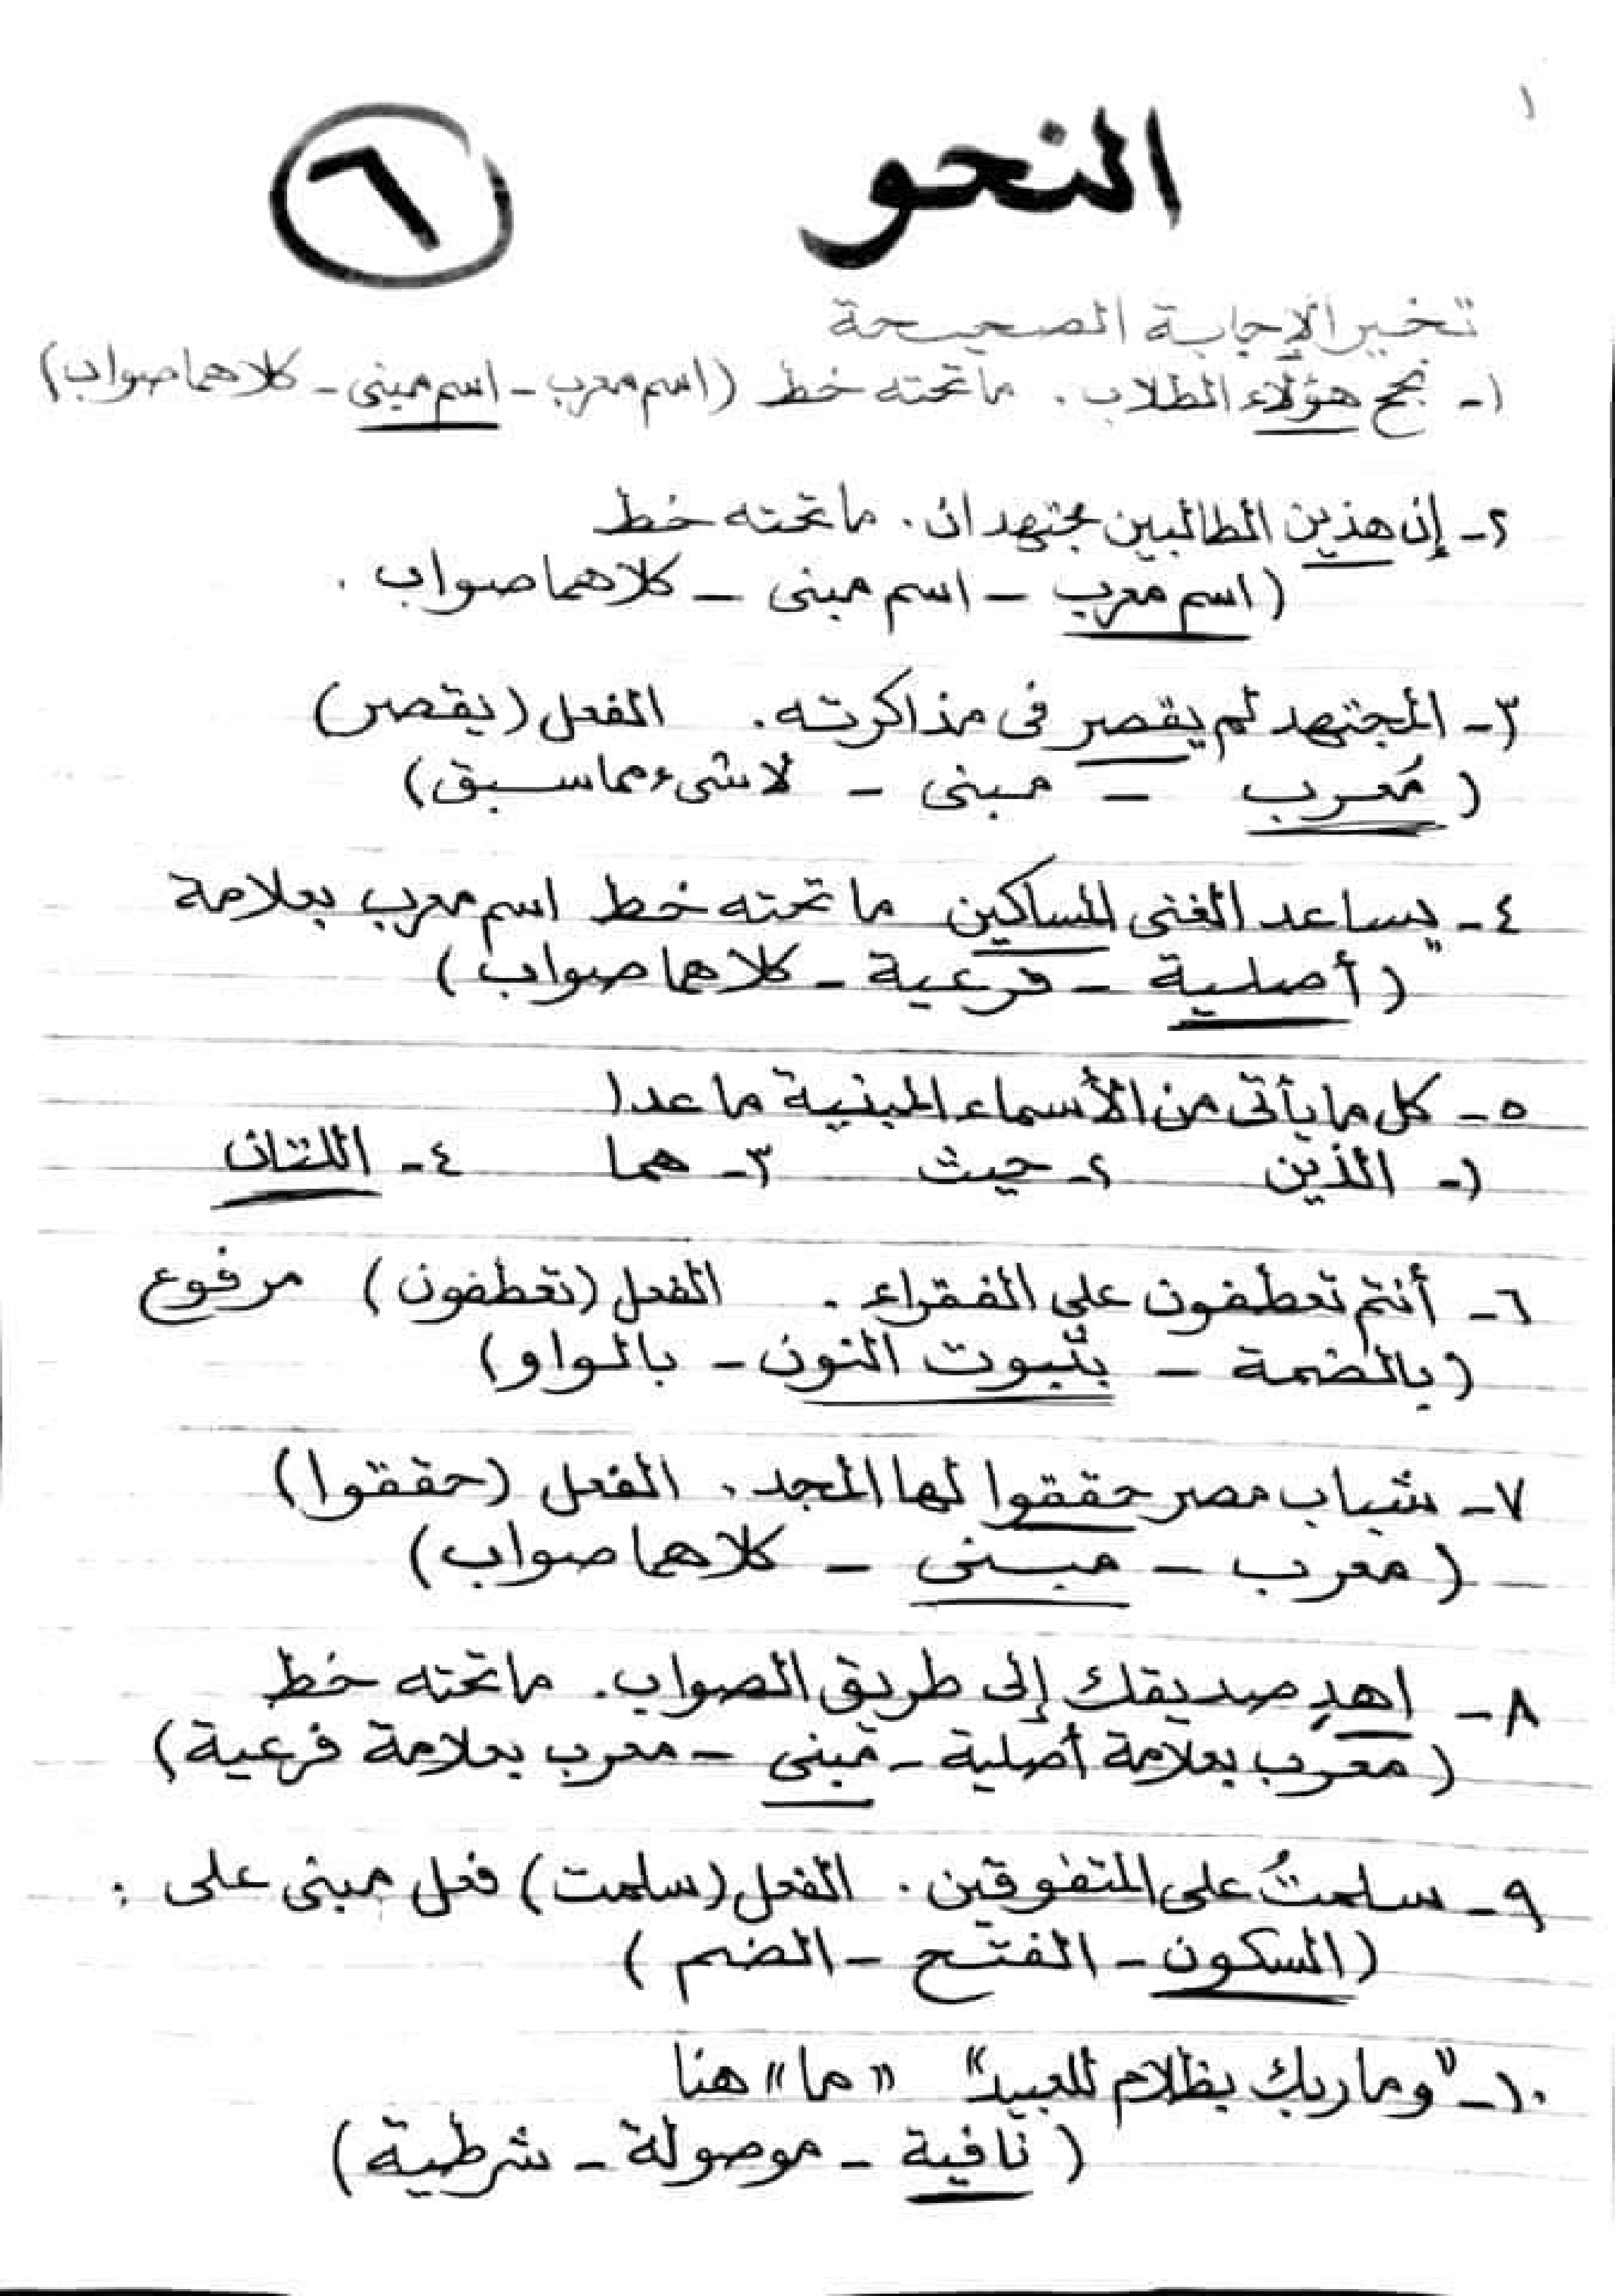 ١
النحو ٦
تخير الإجابة الصحيحة
١- نجح هؤلاء الطلاب . ما تحته خط (اسم معرب - اسم مبنى - كلاهما صواب)
٢- إن هذين الطالبين مجتهدان . ما تحته خط
(اسم معرب - اسم مبنى - كلاهما صواب .
٣- المجتهد لم يقصر فى مذاكرته . الفعل (يقصر)
(مُعرب - مبنى - لا شىء مما سبق)
٤- يساعد الغنى المساكين ما تحته خط اسم معرب بعلامة
(أصلية - فرعية - كلاهما صواب)
٥- كل ما يأتى من الأسماء المبنية ما عدا
١- الذين ٢- حيث ٣- هما ٤- اللتان
٦- أنتم تعطفون على الفقراء . الفعل (تعطفون) مرفوع
(بالضمة - بثبوت النون - بالواو)
٧- شباب مصر حققوا لها المجد . الفعل (حققوا)
(معرب - مبنى - كلاهما صواب)
٨- اهدِ صديقك إلى طريق الصواب . ما تحته خط
(معرب بعلامة أصلية - مبنى - معرب بعلامة فرعية)
٩- سلمتُ على المتفوقين . الفعل (سلمت) فعل مبنى على :
(السكون - الفتح - الضم)
١٠- "وما ربك بظلام للعبيد" "ما" هنا
(نافية - موصولة - شرطية)